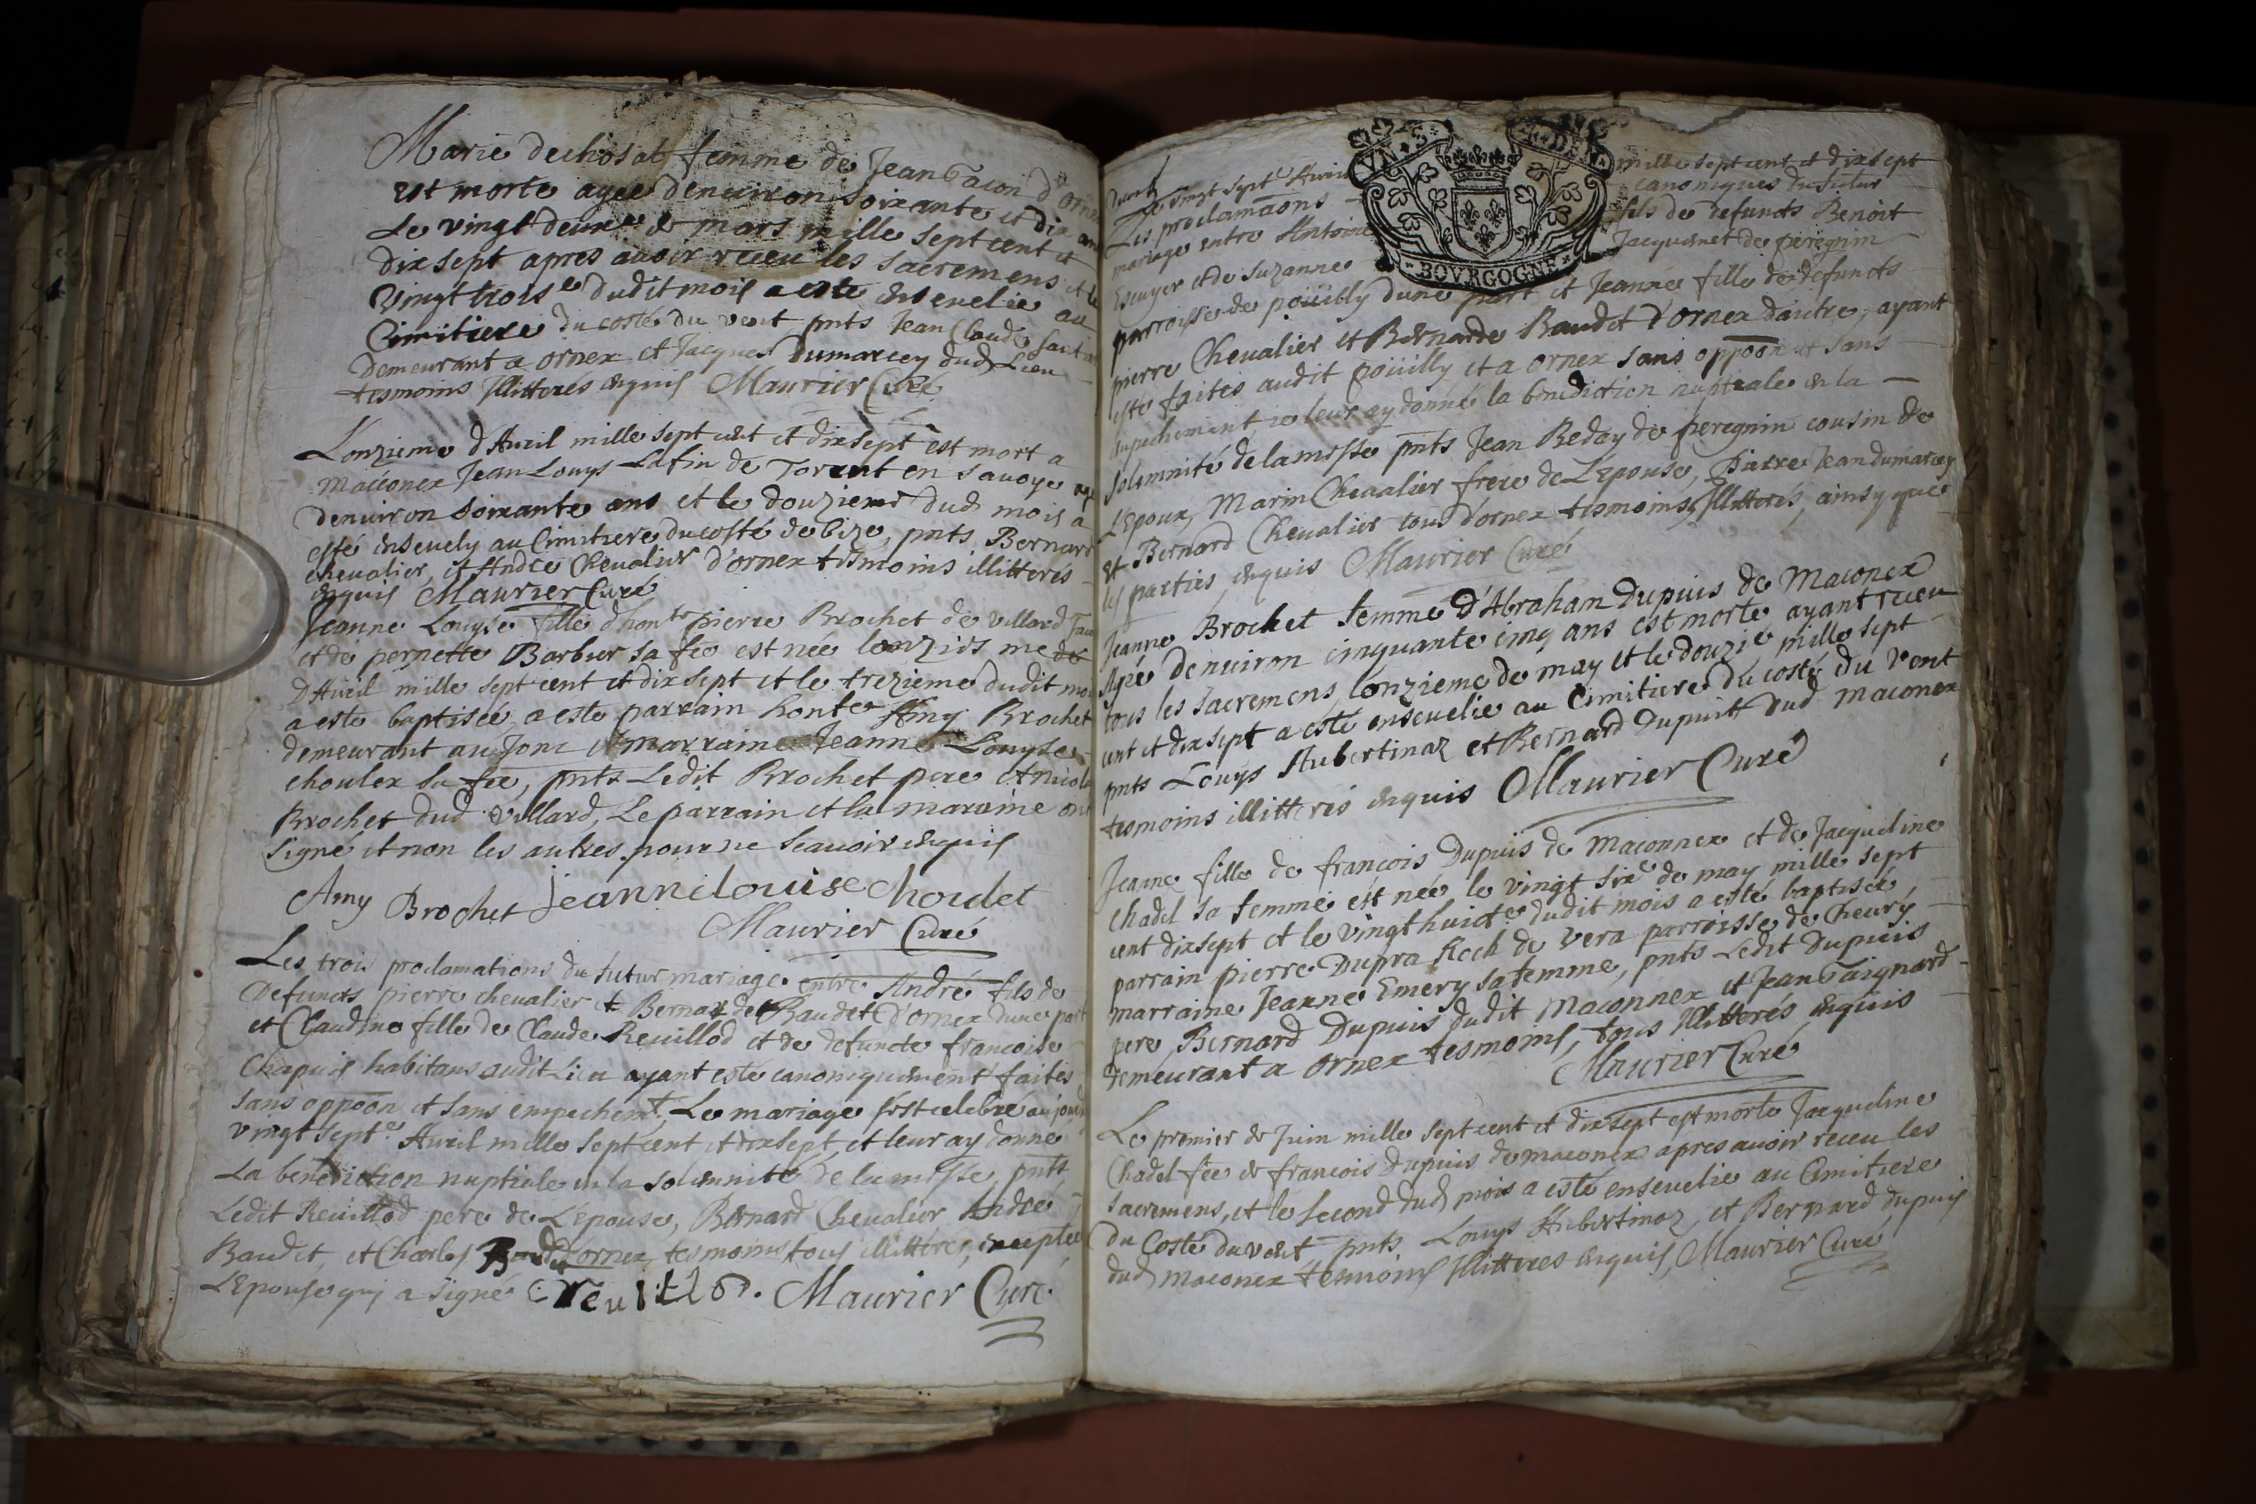 Marie dechosal femme de Jean Gacon d'Ornex
est morte agée denuiron soixante et dix ans
Le vingt deuxe de mars mille sept cent et
dix sept apres auoir receu les sacremens et le
Vingt troise dudit mois a este enseuelie au
Cimitiere du costé du vent pnts Jean Claude
Demeurant a ornex et Jacques Dumarcey dud Lieu
tesmoins Illitteres enquis Maurier Curé
L'onzieme d'Auril mille sept cent et dix sept est mort a
Maconex Jean Louys Lafin de Torent en Sauoye agé
denuiron soixante ans et le douzieme dud mois a
esté enseuely au Cimitiere du costé de bize, pnts Bernard
chevalier, et André Chevalier d'ornex tesmoins illitterés
enquis Maurier Curé
Jeanne Louyse fille d'hont pierre Brochet de Villard
et de pernette Barbier sa fee est née lonzies me de
D'Auril mille sept cent et dix sept et le trezieme dudit mois
a este baptisée a este parrain honte Amy Brochet
demeurant au Jonc et marraine Jeanne Louyse
choulex sa fee, pnts Ledit Brochet pere et
Brochet dud Villard, Le parrain et la maraine ont
signé et non les autres pour ne scauoir enquis
Amy Brochet Jeanne louise Choudet
Maurier Curé
Les trois proclamations du futur mariage entre André fils de
Defuncts pierre chevalier et Bernarde Baudet d'ornex dune part
et Claudine fille de Claude Reuillod et de defuncte francoise
Chapuis habitans audit Lieu ayant este canoniquement faites
sans oppoōn et sans empechemt, Le mariage s'est celebré aujourd
vingt septe Auril mille sept cent et dix sept, et leur ay donné
La benediction nuptiale en la solemnité de la messe, pnts
Ledit Reuillod pere de L'epouse, Bernard Chevalier, André
Baudet, et Charles Baudet d'ornex tesmoins tous illitteres, exceptée
L'Epouse qui a signé C. reuillo. Maurier Curé
VN S DE
BOVRGOGNE
Le vingt septe Auril mille sept cent et dix sept
Les proclamaōns canoniques du futur
mariage entre Antoine fils de defuncts Benoit
Escuyer et de Suzanne Jacquenet de peregnin
parroisse de poüilly dune part et Jeanne fille de defuncts
pierre Chevalier et Bernarde Baudet d'ornex dautre, ayant
este faites audit poüilly et a ornex sans oppoōn et sans
empechement ie leur ay donné la benediction nuptiale en la
solemnité de la messe pnts Jean Reday de peregnin cousin de
L'Epoux, Marin Chevalier frere de L'Epouse, Pierre Jean dumarcey
et Bernard Chevalier tous d'ornex tesmoins Illitterés, ainsy que
les parties, enquis Maurier Curé
Jeanne Brochet femme d'Abraham Dupuis de Maconex
Agée denuiron cinquante cinq ans est morte ayant receu
tous les sacremens, lonzieme de may et le douzie mille sept
cent et dix sept a esté enseuelie au Cimitiere du costé du Vent
pnts Louys Aubertinaz et Bernard Dupuis dud Maconex
tesmoins illitterés enquis Maurier Curé
Jeanne fille de francois Dupuis de Maconnex et de Jacqueline
Chadel sa femme est née le vingt sixe de may mille sept
cent dix sept et le vingt huicte dudit mois a esté baptisée,
parrain pierre Dupra de Vera parroisse de Cheury
marraine Jeanne Emery sa femme, pnts Ledit Dupuis
pere, Bernard Dupuis dudit Maconnex et Jean Gaignard
demeurant a Ornex tesmoins, tous Illitterés enquis
Maurier Curé
Le premier de Juin mille sept cent et dix sept est morte Jacqueline
Chadel fee de francois Dupuis de maconex apres auoir receu les
sacremens, et le second dud mois a esté enseuelie au Cimitiere
du Costé du vent pnts Louys Aubertinaz, et Bernard dupuis
dud maconex tesmoins Illitteres enquis, Maurier Curé